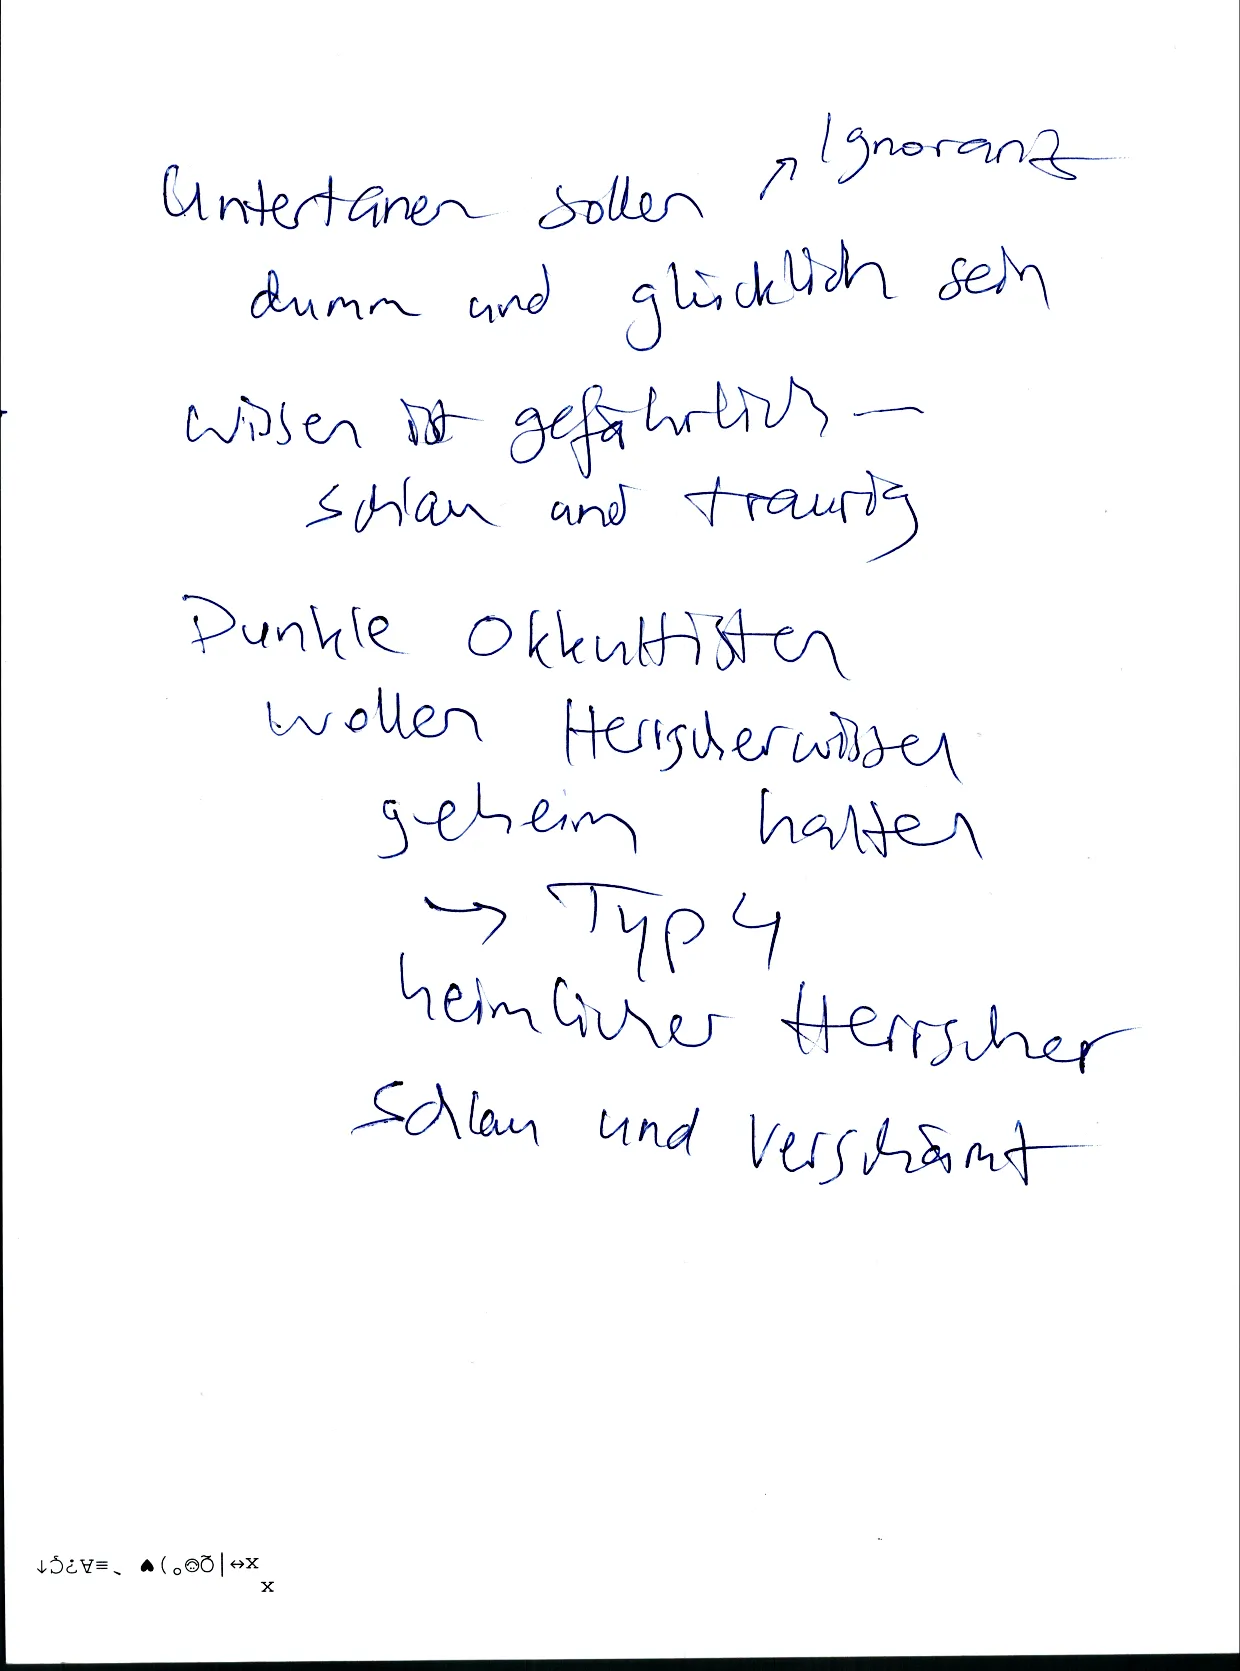 Untertanen sollen ↗ Ignoranz
dumm und glücklich sein
wissen ist gefährlich —
schlau und traurig
Dunkle Okkultisten
wollen Herrscherwissen
geheim halten
→ Typ 4
heimlicher Herrscher
schlau und verschämt